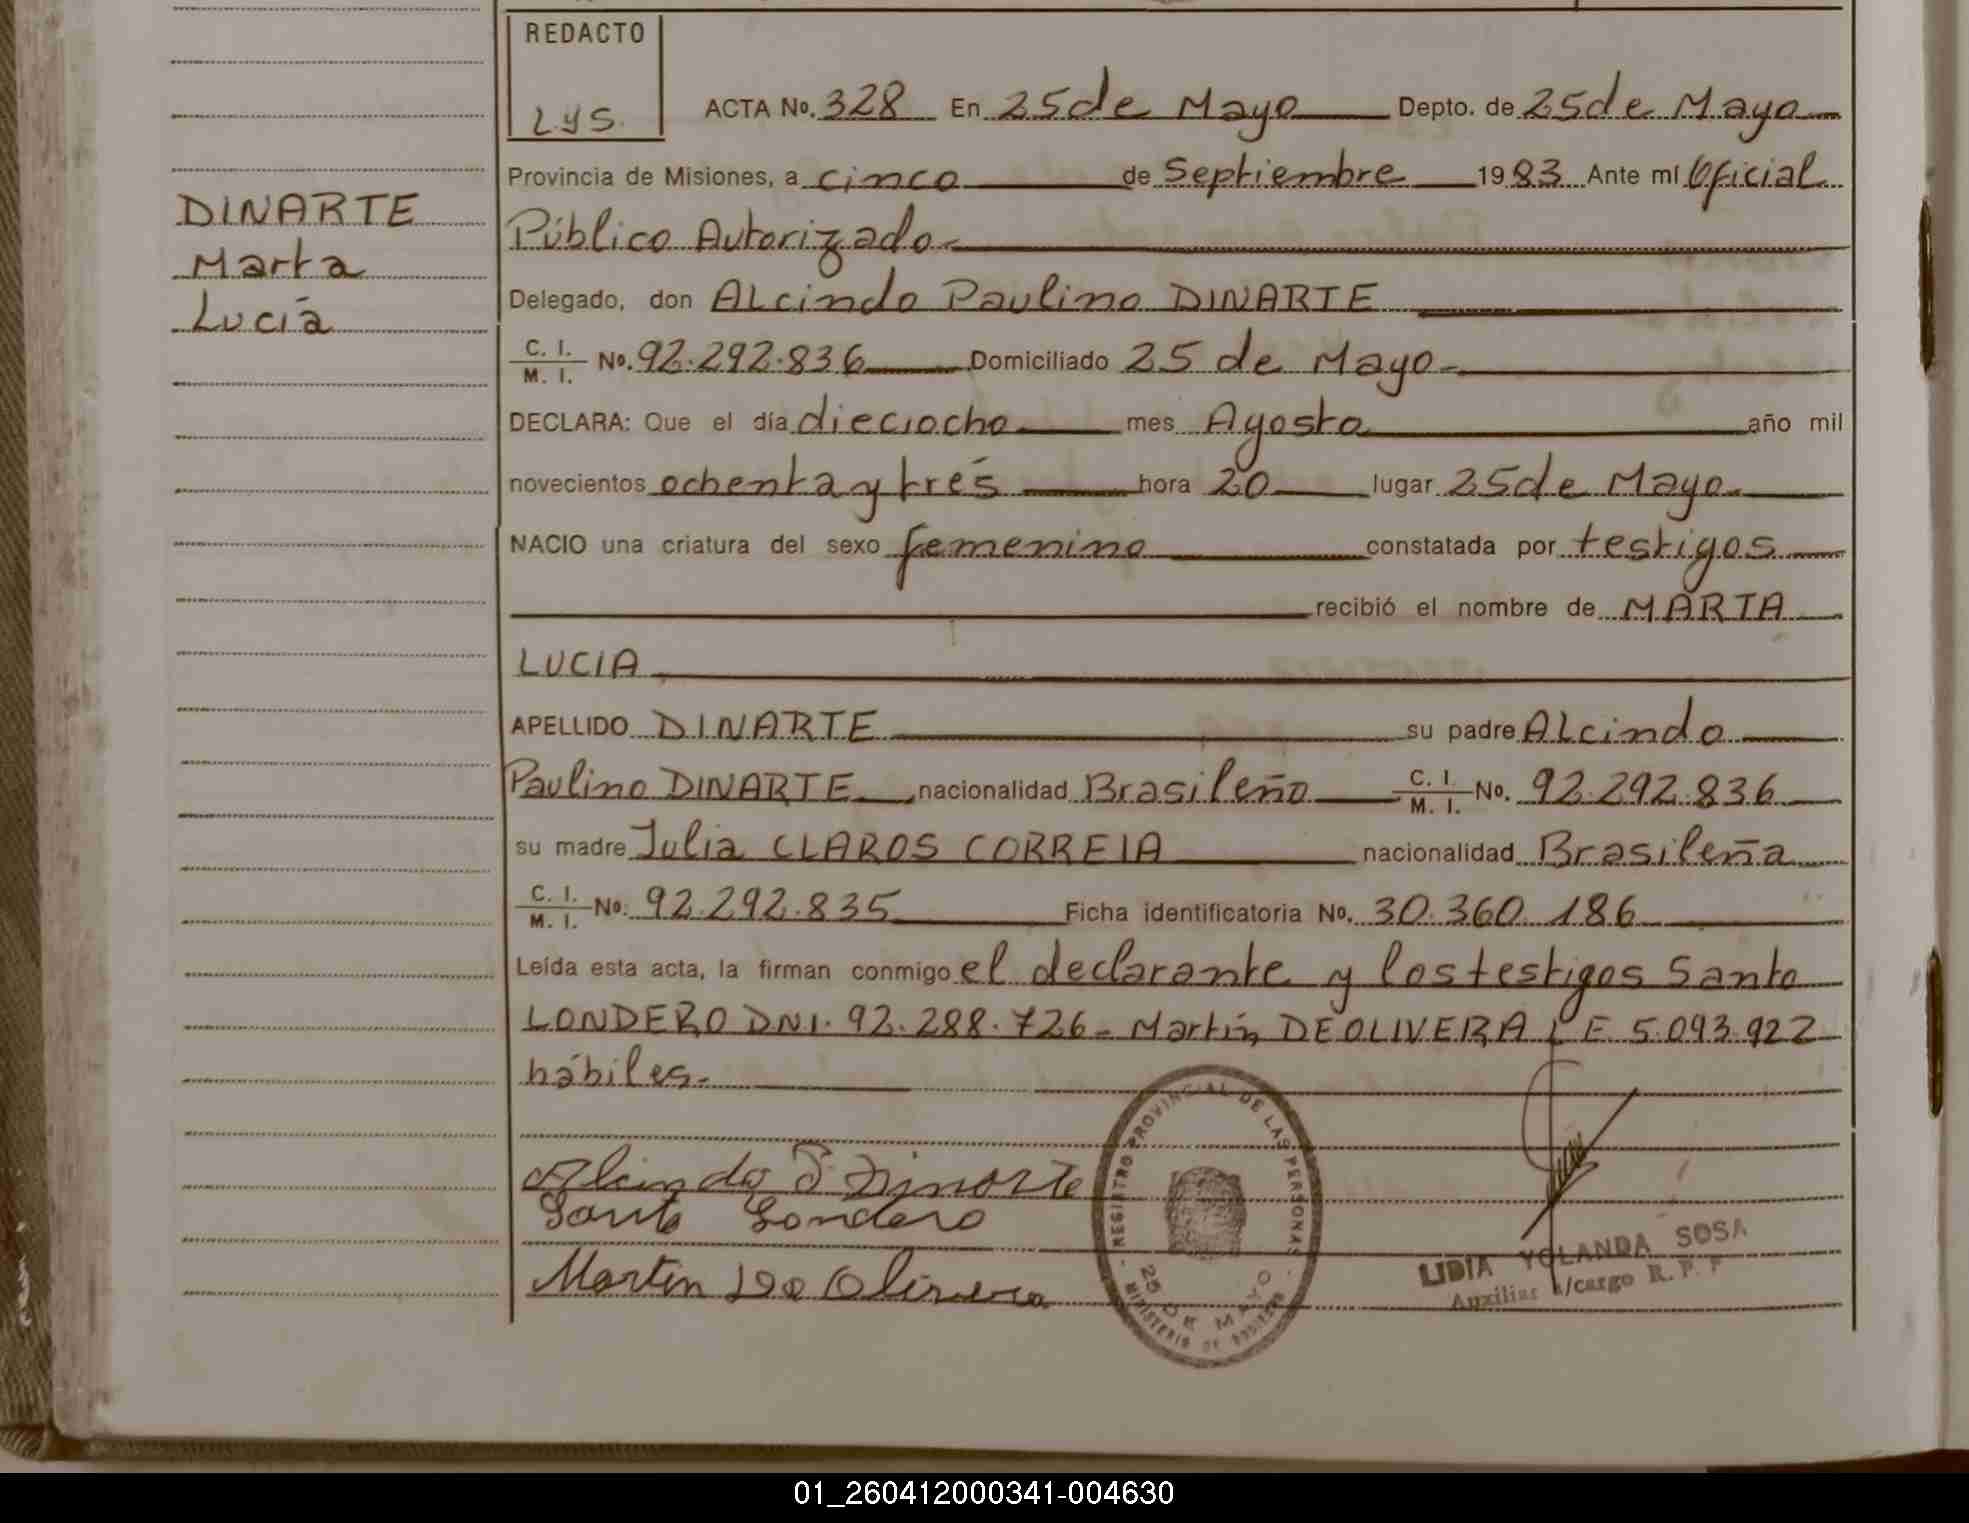 REDACTO
LYS.
ACTA No. 328 En 25 de Mayo Depto. de 25 de Mayo
Provincia de Misiones, a cinco de Septiembre 1983 Ante mí Oficial
Público Autorizado.
DINARTE
Marta
Lucía
Delegado, don ALcindo Paulino DINARTE
C. I.
M. I. No. 92.292.836 Domiciliado 25 de Mayo.
DECLARA: Que el día dieciocho mes Agosto año mil
novecientos ochenta y trés hora 20 lugar 25 de Mayo.
NACIO una criatura del sexo femenino constatada por testigos
recibió el nombre de MARTA
LUCIA
APELLIDO DINARTE su padre ALcindo
Paulino DINARTE nacionalidad Brasileño C. I.
M. I. No. 92.292.836
su madre Julia CLAROS CORREIA nacionalidad Brasileña
C. I.
M. I. No. 92.292.835 Ficha identificatoria No. 30.360.186
Leída esta acta, la firman conmigo el declarante y los testigos Santo
LONDERO DNI. 92.288.726- Martín DE OLIVERA L E 5.093.922
hábiles.
Alcindo P Dinarte
Santo Londero
Martin De Olivera
REGISTRO PROVINCIAL DE LAS PERSONAS
25 DE MAYO
MINISTERIO DE GOBIERNO
LIDIA YOLANDA SOSA
Auxiliar a/cargo R. P. P
01_260412000341-004630